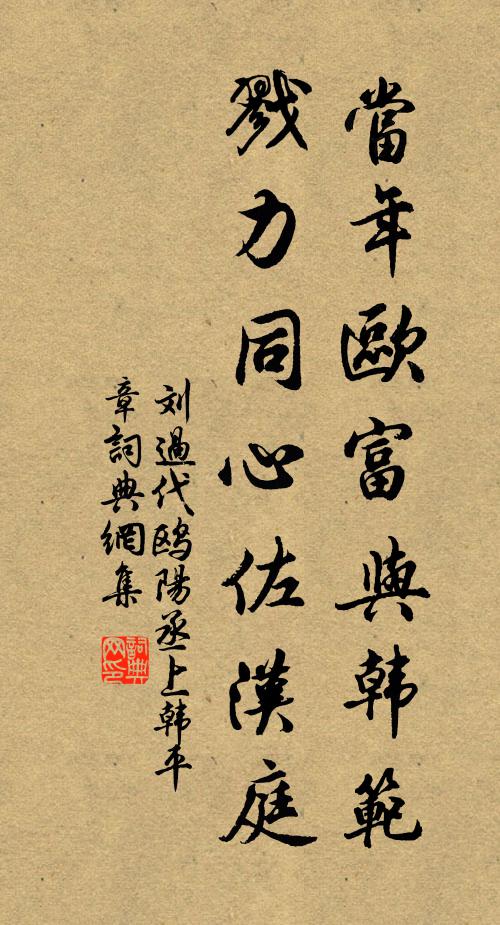 當年歐富與韩範
戮力同心佐漢庭
刘過代鸥陽丞上韩平
章詞典網集
詞典网印